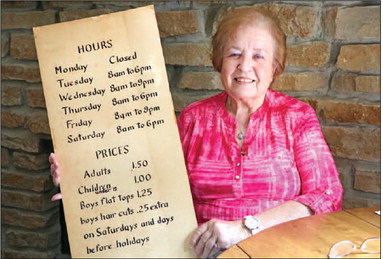 HOURS
Monday Closed
Tuesday 8am to 6pm
Wednesday 8am to 9pm
Thursday 8am to 6pm
Friday 8am to 9pm
Saturday 8am to 6pm
PRICES
Adults 1.50
Children 1.00
Boys flat tops 1.25
boys hair cuts .25 extra
on Saturdays and days
before holidays